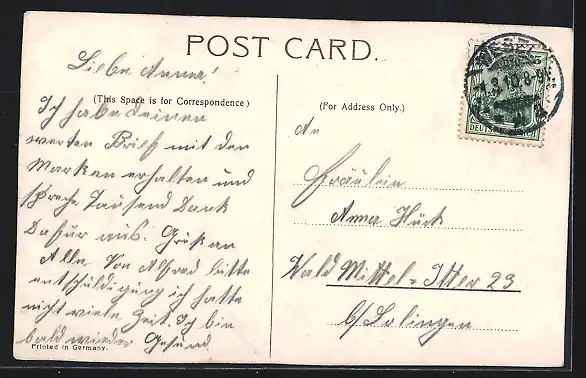 POST CARD.
Liebe Anna!
(This Space is for Correspondence)
Ich habe deinen
werten Brief mit den
Marken erhalten und
spreche Tausend Dank
Dafür aus. Grüß an
Alle. Von Alfred bitte
entschüldigung ich hatte
nicht viele Zeit. Ich bin
bald wieder Gesünd
Printed in Germany.
(For Address Only.)
An
Fräulein
Anna Hück
Wald Mittel-Itter 23
b/Solingen
5
DEUTSCHES REICH